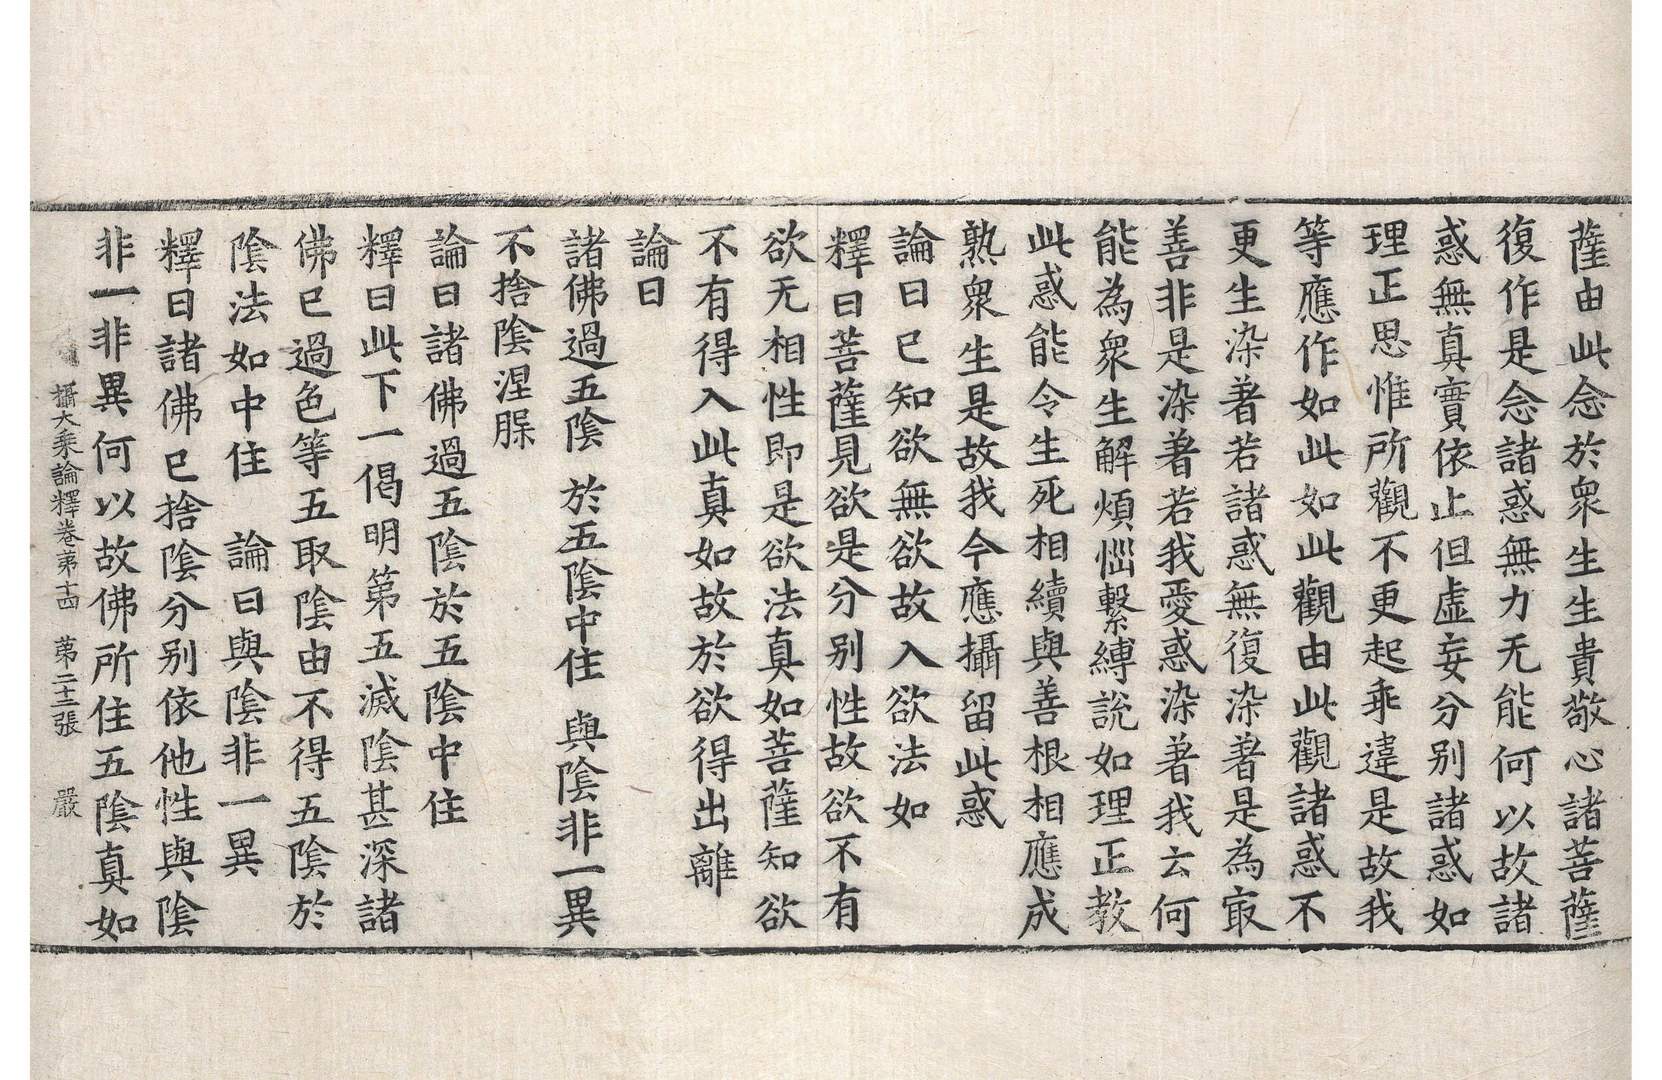 薩由此念於衆生生貴敬心諸菩薩
復作是念諸惑無力无能何以故諸
惑無真實依止但虛妄分別諸惑如
理正思惟所觀不更起乖違是故我
等應作如此如此觀由此觀諸惑不
更生染著若諸惑無復染著是為㝡
善非是染著若我愛惑染著我云何
能為衆生解煩惱繫縛說如理正教
此惑能令生死相續與善根相應成
熟衆生是故我今應攝留此惑
論曰已知欲無欲故入欲法如
釋曰菩薩見欲是分別性故欲不有
欲无相性即是欲法真如菩薩知欲
不有得入此真如故於欲得出離
論曰
諸佛過五陰 於五陰中住 與陰非一異
不捨陰涅槃
論曰諸佛過五陰於五陰中住
釋曰此下一偈明第五滅陰甚深諸
佛已過色等五取陰由不得五陰於
陰法如中住 論曰與陰非一異
釋曰諸佛已捨陰分別依他性與陰
非一非異何以故佛所住五陰真如
攝大乘論釋卷第十四 第二十三張 嚴